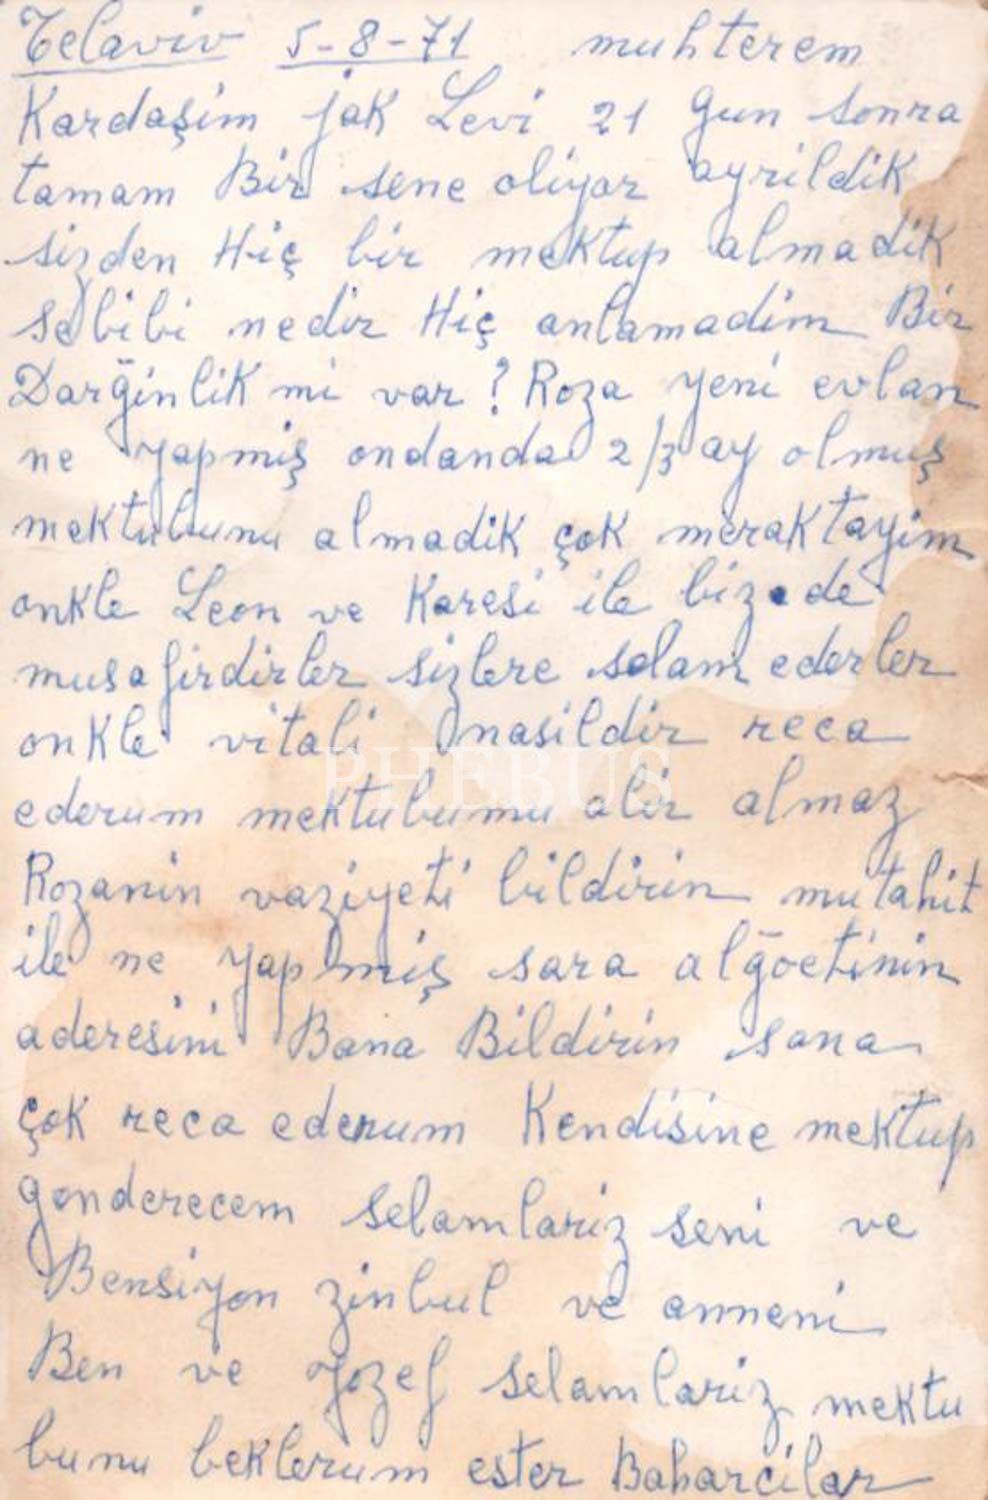 Telaviv 5-8-71 muhterem
Kardaşim jak Levi 21 gun sonra
tamam Bir sene oliyor ayrildik
sizden Hiç bir mektup almadik
sebibi nedir Hiç anlamadim Bir
Darğinlik mi var? Roza yeni evlan
ne yapmiş ondanda 2/3 ay olmuş
mektubunu almadik çok meraktayim
onkle Leon ve Karesi ile bizede
musafirdirler sizlere selam ederler
onkle vitali nasildir reca
ederum mektubumu alir almaz
PHEBUS
Rozanin vaziyeti bildirin mutahit
ile ne yapmiş sara alğoetinin
aderesini Bana Bildirin sana
çok reca ederum Kendisine mektup
gonderecem selamlariz seni ve
Bensiyon zinbul ve anneni
Ben ve Jozef selamlariz mektu
bunu beklerum ester Baharcilar